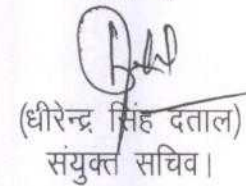 (धीरेन्द्र सिंह दताल)
संयुक्त सचिव।